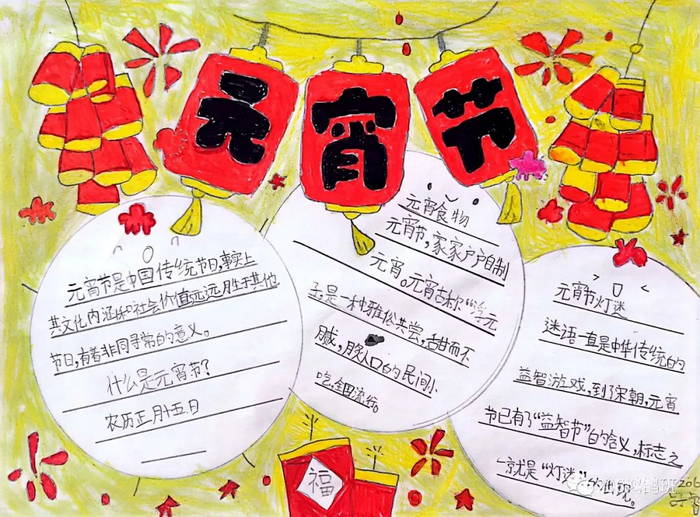 元宵节
元宵节是中国传统节日,事实上
其文化内涵乐社会价值远远胜于其他
节日,有着非同寻常的意义。
什么是元宵节?
农历正月十五日
元宵食物
元宵节,家家户户自制
元宵。元宵古称"浮元
子是一种雅俗共尝,甜而不
腻,脍人口的民间小
吃,全国流行。
元宵节灯迷
谜语一直是中华传统的
益智游戏,到了宋朝,元宵
节已有了"益智节"的含义,标志之
一就是"灯迷"的出现。
福